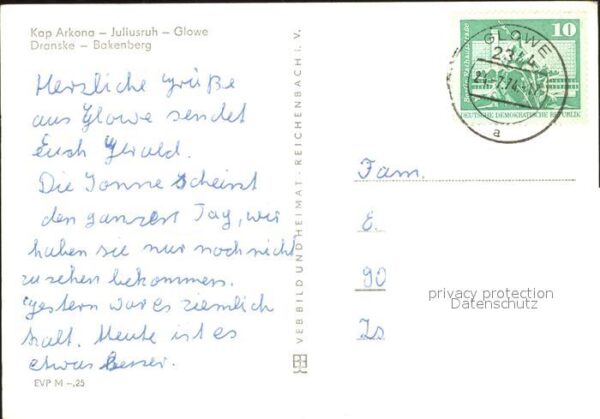 Kap Arkona – Juliusruh – Glowe
Dranske – Bakenberg
Herzliche Grüße
aus Glowe sendet
Euch Gerald.
Die Sonne scheint
den ganzen Tag, wir
haben sie nur noch nicht
zu sehen bekommen.
Gestern war es ziemlich
kalt. Heute ist es
etwas besser.
EVP M –,25
VEB BILD UND HEIMAT · REICHENBACH i. V.
GLOWE
2344
a
10
DEUTSCHE DEMOKRATISCHE REPUBLIK
Fam.
E.
90
privacy protection
Datenschutz